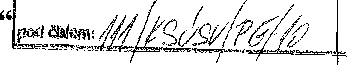 “
pod číslem: 111/KSÚSV/PE/10